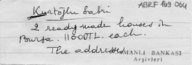 Kurtoğlu Sabri
2 ready made houses in
Bursa. 11600TL. each.
The address
OSMANLI BANKASI
Arşivleri